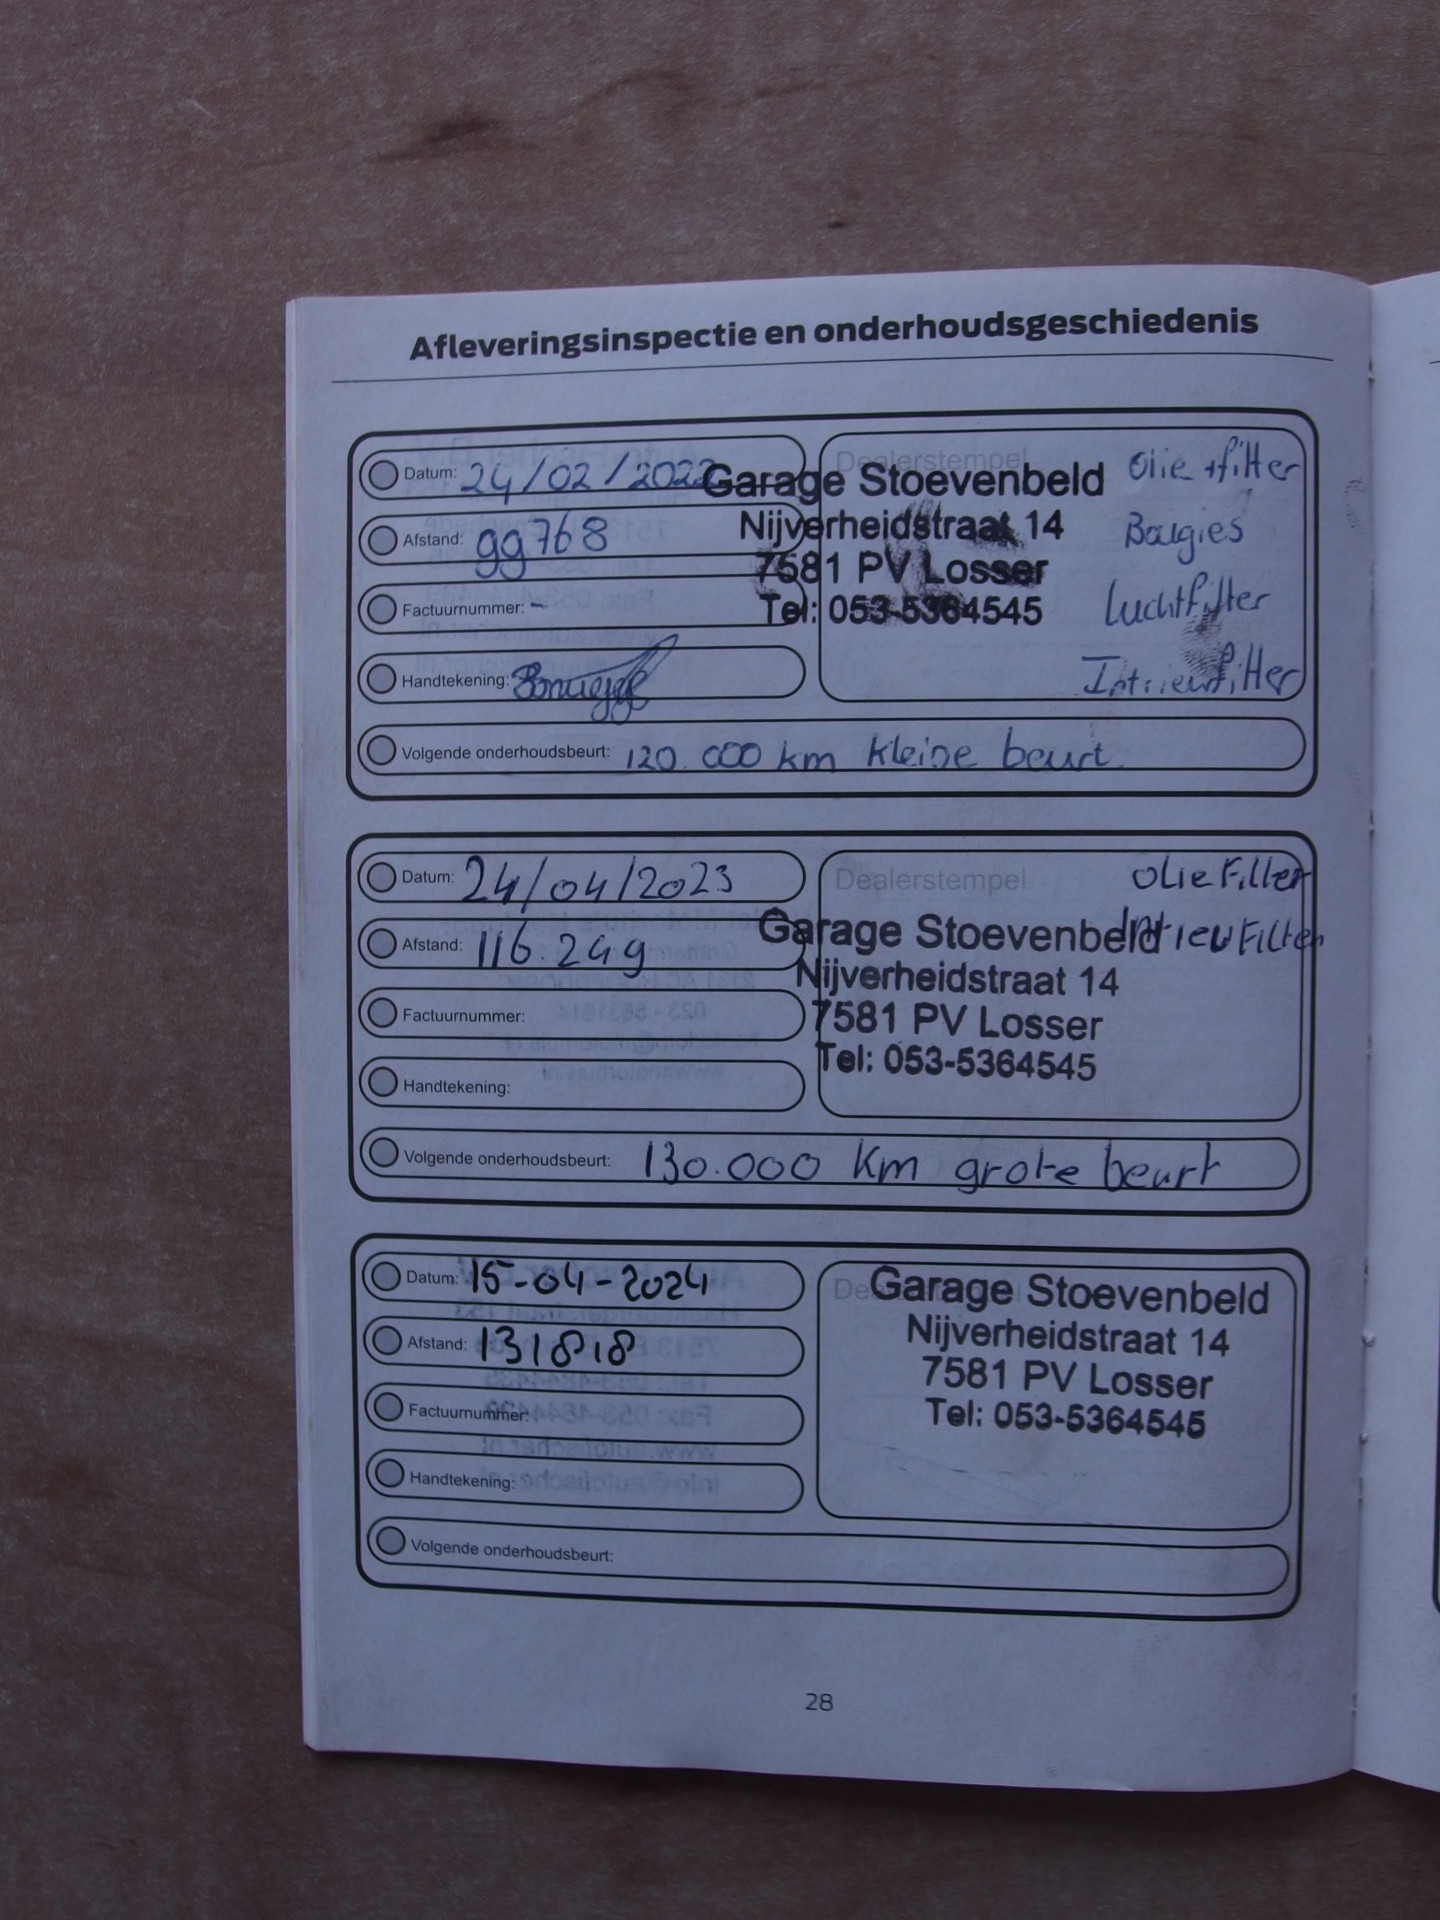 Afleveringsinspectie en onderhoudsgeschiedenis
Datum: 24/02/2022
Afstand: 99768
Factuurnummer: -
Handtekening:
Dealerstempel
Garage Stoevenbeld
Nijverheidstraat 14
7581 PV Losser
Tel: 053-5364545
Olie +filter
Bougies
Luchtfilter
Intrieurfilter
Volgende onderhoudsbeurt: 120.000 km kleine beurt
Datum: 24/04/2023
Afstand: 116.249
Factuurnummer:
Handtekening:
Dealerstempel
Garage Stoevenbeld
Nijverheidstraat 14
7581 PV Losser
Tel: 053-5364545
Olie Filter
Volgende onderhoudsbeurt: 130.000 km grote beurt
Datum: 15-04-2024
Afstand: 131818
Factuurnummer:
Handtekening:
Dealerstempel
Garage Stoevenbeld
Nijverheidstraat 14
7581 PV Losser
Tel: 053-5364545
Volgende onderhoudsbeurt:
28